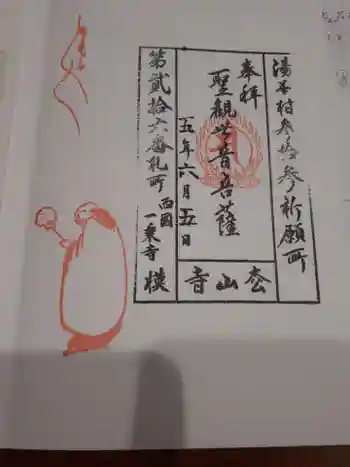 湯谷村参拾参祈願所
奉拝
聖観世音菩薩
五年六月五日
第貳拾六番札所
西国
一乗寺
模
松山寺